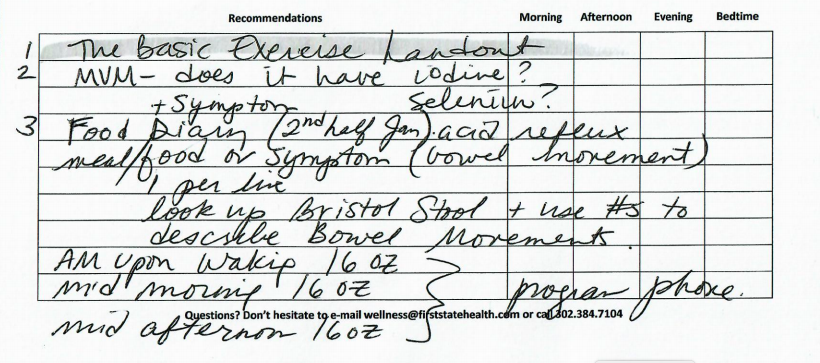 Recommendations Morning Afternoon Evening Bedtime
1 The basic Exercise handout
2 MVM - does it have iodine?
+ Symptom Selenium?
3 Food Diary (2nd half Jan). acid reflux
meal/food or Symptom (bowel movement)
1 per line
look up Bristol Stool + use #s to
describe Bowel Movements.
AM upon wakip 16 oz
mid morning 16 oz } program phone.
Questions? Don't hesitate to e-mail wellness@firststatehealth.com or call 302.384.7104
mid afternoon 16oz